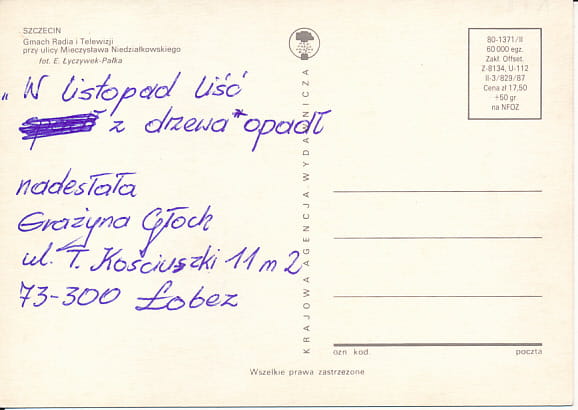 SZCZECIN
Gmach Radia i Telewizji
przy ulicy Mieczysława Niedziałkowskiego
fot. E. Łyczywek-Pałka
„W listopad liść
z drzewa opadł
nadesłała
Grażyna Głoch
ul. T. Kościuszki 11 m 2
73-300 Łobez
KRAJOWA AGENCJA WYDAWNICZA
80-1371/II
60 000 egz.
Zakł. Offset.
Z-8134, U-112
II-3/829/87
Cena zł 17,50
+50 gr
na NFOZ
ozn kod.
poczta
Wszelkie prawa zastrzeżone